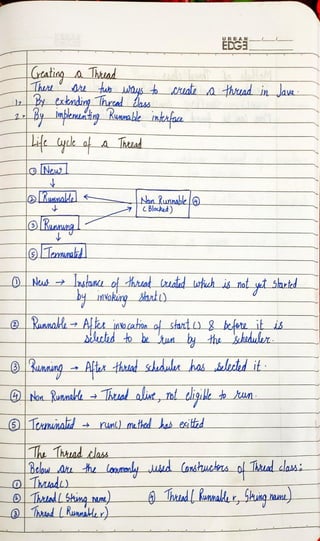 URBAN
EDGE
Creating a Thread
There are two ways to create a thread in Java.
1. By extending Thread class
2. By Implementing Runnable interface
Life Cycle of a Thread
① New
② Runnable
Non Runnable ④
(Blocked)
③ Running
⑤ Terminated
① New → Instance of thread created which is not yet started
by invoking start()
② Runnable → After invocation of start() & before it is
selected to be run by the scheduler.
③ Running → After thread scheduler has selected it.
④ Non Runnable → Thread alive, not eligible to run.
⑤ Terminated → run() method has exitted
The Thread class
Below are the commonly used Constructors of Thread class:
① Thread()
② Thread (String name) ④ Thread (Runnable r, String name)
③ Thread (Runnable r)